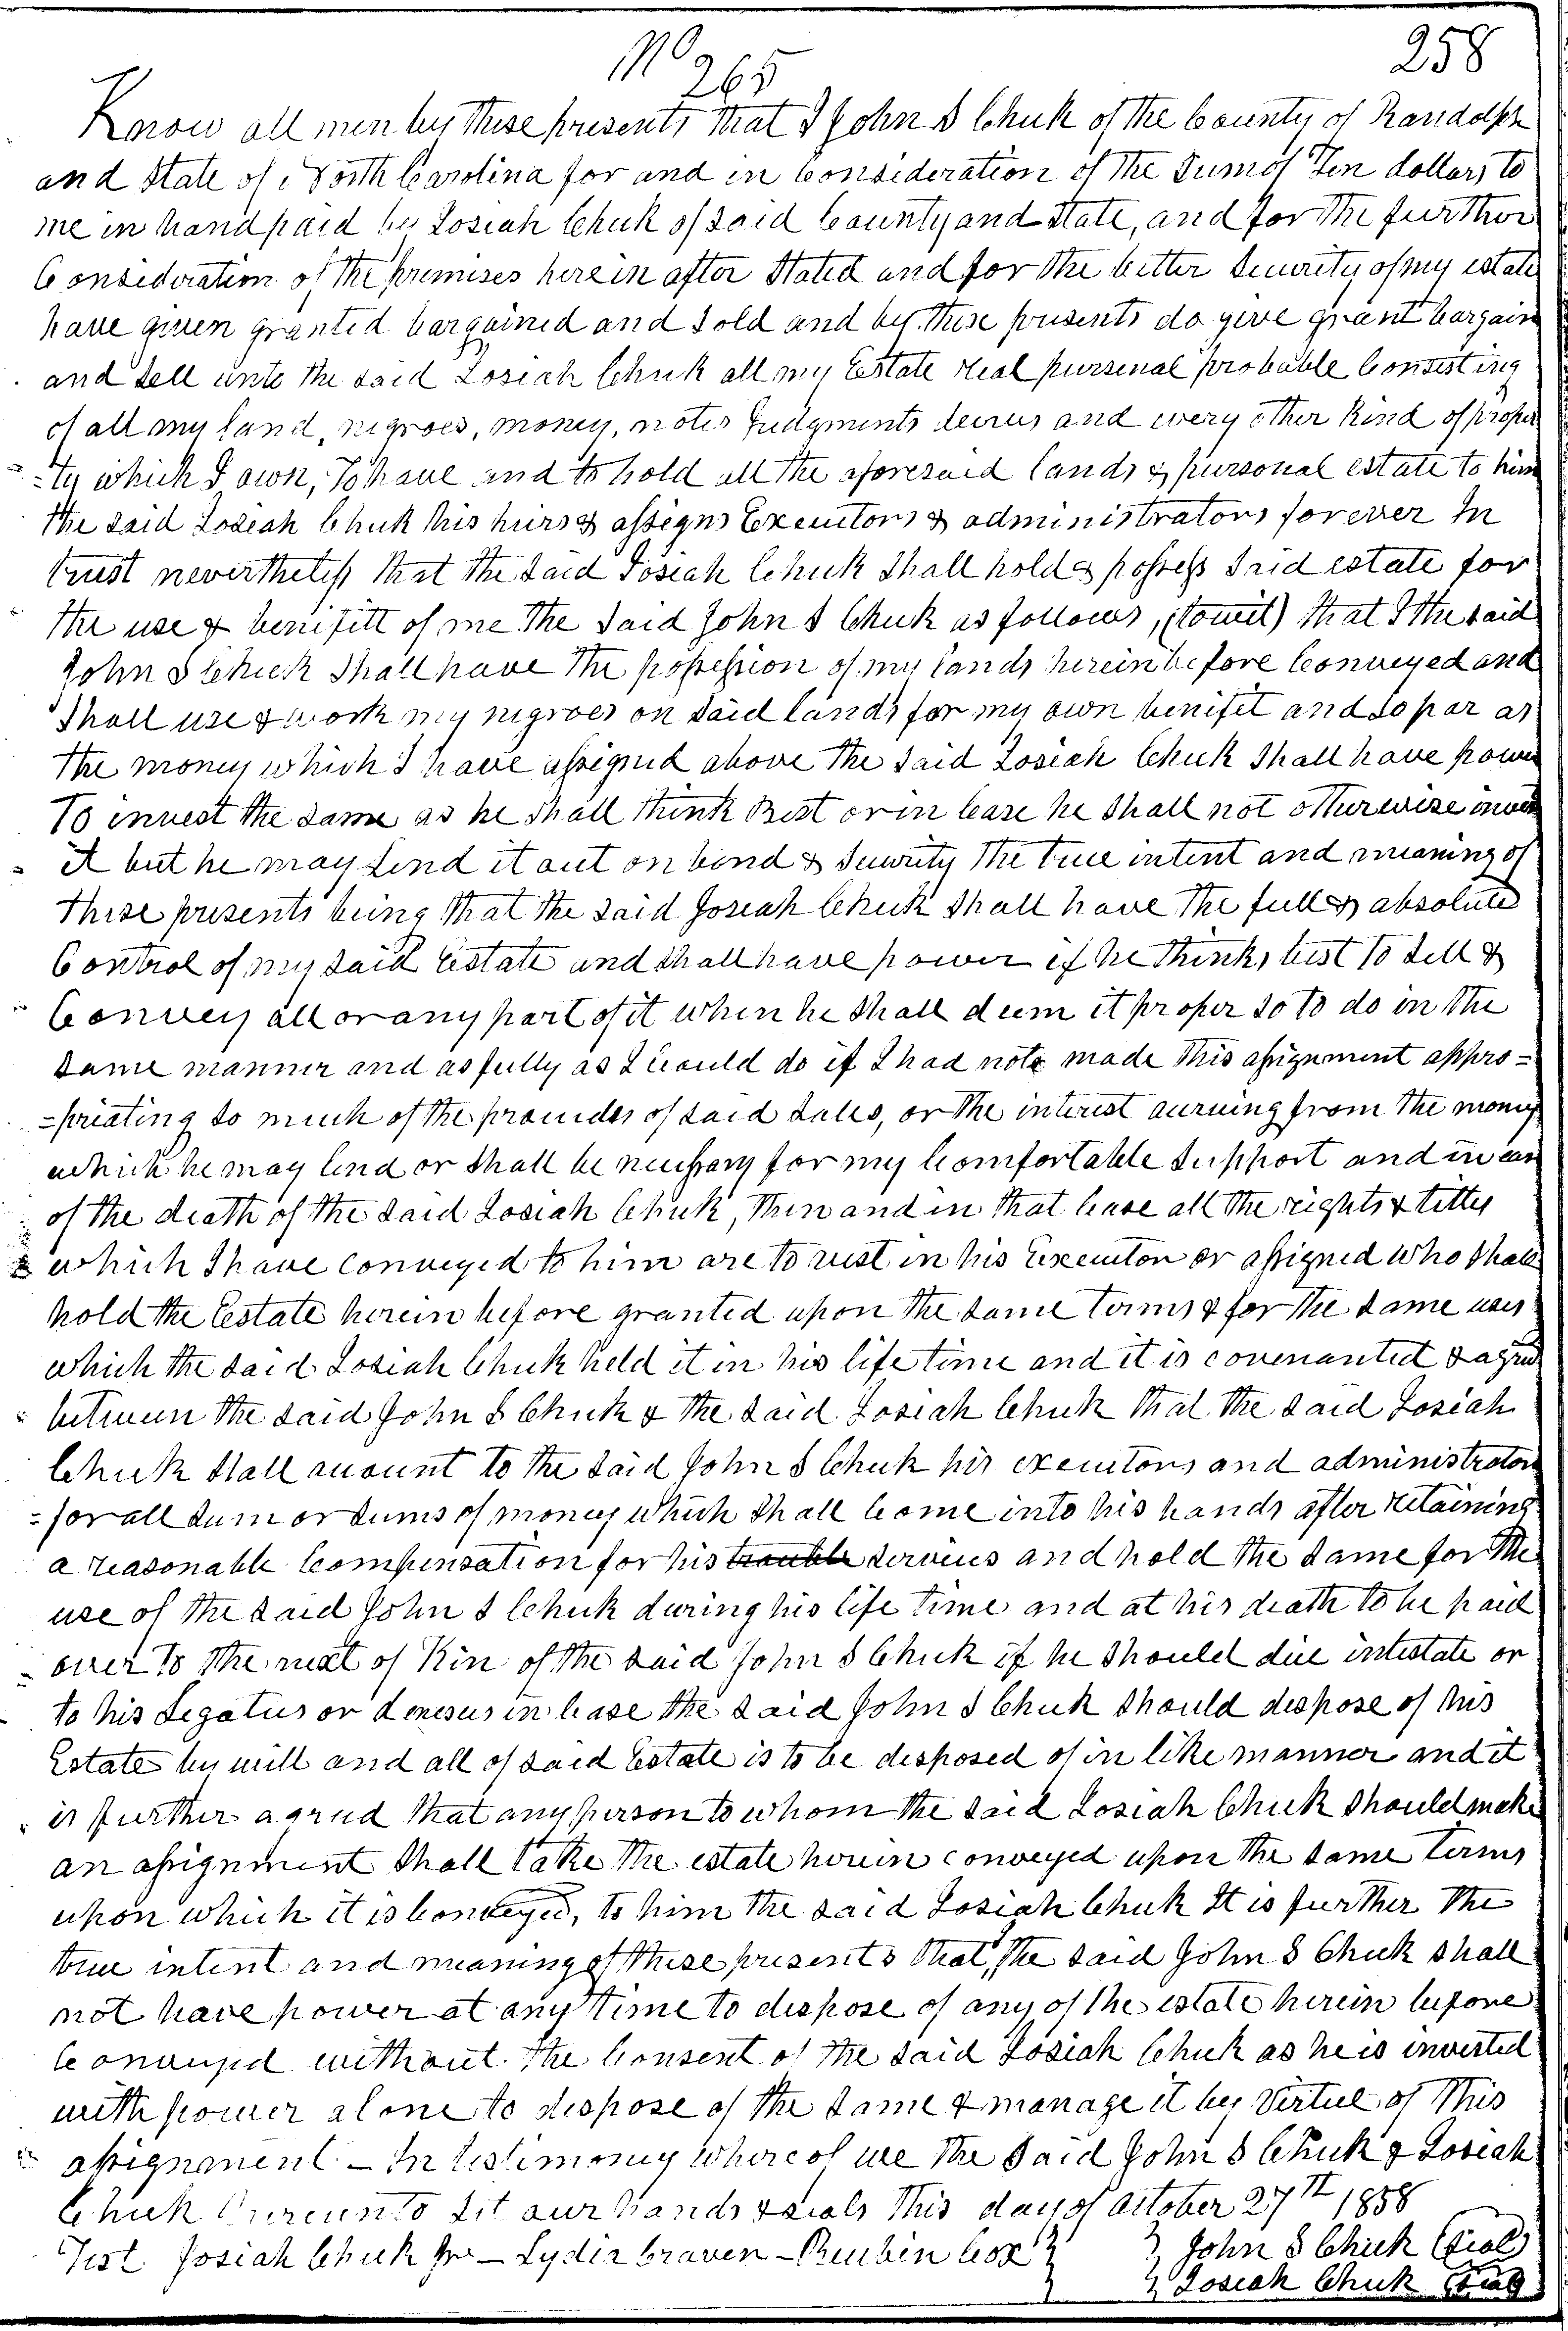 258
No 265
Know all men by these presents that I John S Cheek of the County of Randolph
and State of North Carolina for and in Consideration of the Sum of Ten dollars to
me in hand paid by Josiah Cheek of said County and State, and for the further
Consideration of the premises herein after Stated and for the better Security of my estate
have given granted bargained and Sold and by these presents do give grant bargain
and Sell unto the said Josiah Cheek all my Estate real pursenal probable Consisting
of all my land, negroes, money, notes Judgments and every other Kind of proper
-ty which I own, To have and to hold all the aforesaid lands & pursonal estate to him
the said Josiah Cheek his heirs & assigns Executors & administrators forever In
trust nevertheless that the Said Josiah Cheek Shall hold & possess Said estate for
the use & benifitt of me the Said John S Cheek as follows, (towit) that I the said
John S Cheek Shall have the possession of my lands herein before Conveyed and
Shall use & work my negroes on said lands for my own benifit and so par as
the money which I have assigned above the said Josiah Cheek Shall have power
To invest the same as he Shall think Best or in Case he Shall not otherwise invest
it but he may Lend it out on bond & Security The true intent and meaning of
these presents being that the said Josiah Cheek Shall have the full & absolute
Control of my said Estate and shall have power if he thinks best to Sell &
Convey all or any part of it when he Shall deem it proper so to do in the
same manner and as fully as I Could do if I had note made this assignment appro-
-priating so much of the proceedes of said Sales, or the interest accruing from the money
which he may lend or Shall be necessary for my Comfortable Support and in case
of the death of the said Josiah Cheek, Then and in that Case all the rights & titles
which I have conveyed to him are to vest in his Executor or assigned who Shall
hold the Estate herein before granted upon the same terms & for the same uses
which the said Josiah Cheek held it in his life time and it is covenanted & agreed
between the said John S Cheek & the said Josiah Cheek that the said Josiah
Cheek Shall account to the said John S Cheek his executors and administrators
-for all sum or sums of money which Shall Come into his hands after retaining
a reasonable Compensation for his trouble services and hold the same for the
use of the said John S Cheek during his life time and at his death to be paid
over to the next of Kin of the said John S Cheek if he Should die intestate or
to his Legatees or in Case the said John S Cheek should dispose of his
Estate by will and all of said Estate is to be disposed of in like manner and it
is further agreed that any person to whom the said Josiah Cheek should make
an assignment Shall take the estate herein conveyed upon the same terms
upon which it is Conveyed, to him the said Josiah Cheek It is further the
true intent and meaning of these presents that, the said John S Cheek shall
not have power at any time to dispose of any of the estate herein before
Conveyed without the Consent of the said Josiah Cheek as he is invested
with power alone to dispose of the same & manage it by Virtue of this
assignment – In testimony whereof we the said John S Cheek & Josiah
Cheek hereunto Set our hands & seals this day of October 27th 1858
Test. Josiah Cheek Jr – Lydia Craven – Reuben Cox
John S Cheek (Seal)
Josiah Cheek (Seal)